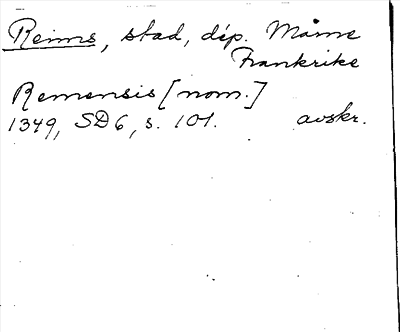 Reims, stad, dép. Marne
Frankrike
Remensis [nom.]
1349, SD 6, s. 101. avskr.